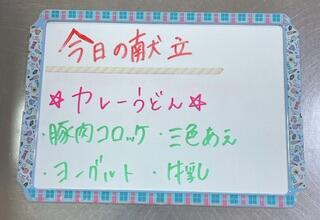 今日の献立
☆カレーうどん☆
・豚肉コロッケ・三色あえ
・ヨーグルト・牛乳